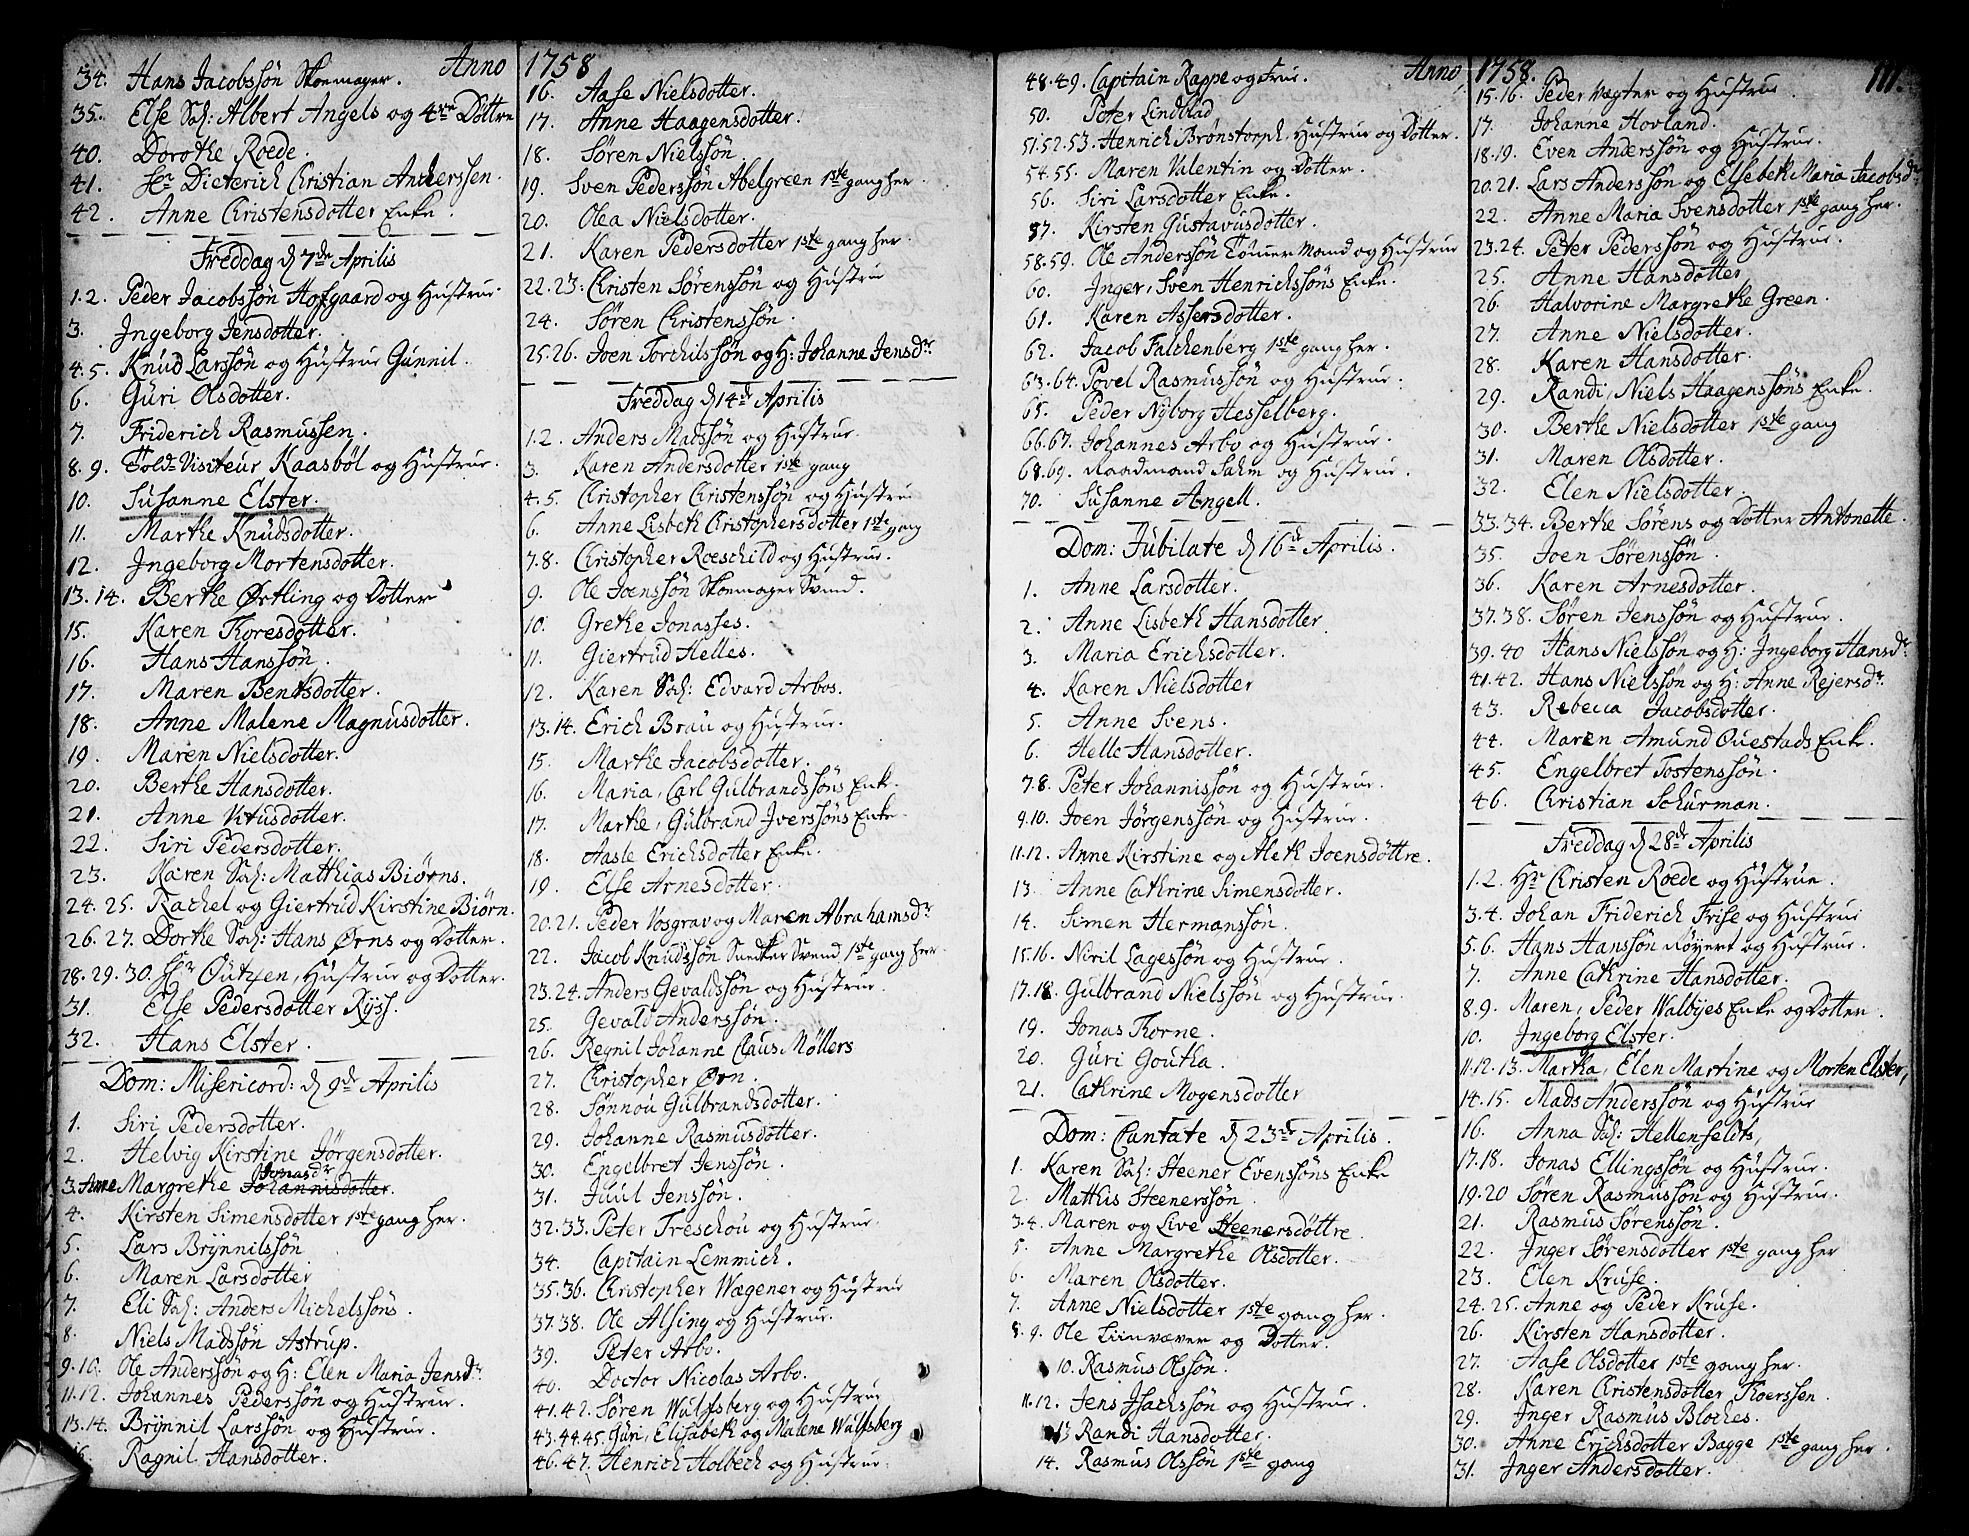 Anno 1758
34. Hans Jacobssøn Skoemager.
35. Else Sal: Albert Angels og 4re Döttre
40. Dorothe Roede.
41. Sr Dieterich Christian Anderssen.
42. Anne Christensdotter Enke.
Freddag d 7de Aprilis
1.2. Peder Jacobssøn Hofgaard og Hustrue
3. Ingeborg Jensdotter.
4.5. Knud Larssøn og Hustrue Gunnil.
6. Guri Olsdotter.
7. Friderich Rasmussen.
8.9. Told-Visiteur Kaasböl og Hustrue.
10. Susanne Elster.
11. Marthe Knudsdotter.
12. Ingeborg Mortensdotter.
13.14. Berthe Ørtling og Dotter
15. Karen Thoresdotter.
16. Hans Hanssøn.
17. Maren Bentsdotter.
18. Anne Malene Magnusdotter.
19. Maren Nielsdotter.
20. Berthe Hansdotter.
21. Anne Knusdotter.
22. Siri Pedersdotter.
23. Karen Sal: Matthias Biørns.
24.25. Rachel og Giertrud Kirstine Biørn.
26.27. Dorthe Sal: Hans Ørns og Dotter.
28.29.30. Hr Outzen, Hustrue og Dotter.
31. Else Pedersdotter Ryss.
32. Hans Elster.
Dom: Misericord: d 9de Aprilis
1. Siri Pedersdotter.
2. Helvig Kirstine Jörgensdotter.
Jonasdr
3. Anne Margrethe Johannisdotter.
4. Kirsten Simensdotter 1ste gang her.
5. Lars Brynnilssøn
6. Maren Larsdotter
7. Eli Sal: Anders Michelssøns.
8. Niels Madssøn Astrup.
9.10. Ole Anderssøn og H: Elen Maria Jensdr
11.12. Johannes Pederssøn og Hustrue.
13.14. Brynnil Larssøn og Hustrue.
Ragnil Hansdotter.
16. Aase Nielsdotter.
17. Anne Haagensdotter.
18. Søren Nielssøn.
19. Sven Pederssøn Abelgreen 1ste gang her.
20. Olea Nielsdotter.
21. Karen Pedersdotter 1ste gang her.
22.23. Christen Sørenssøn og Hustrue
24. Søren Christenssøn.
25.26. Joen Torchilssøn og H: Johanne Jensdr
Freddag d 14de Aprilis
1.2. Anders Madssøn og Hustrue.
3. Karen Andersdotter 1ste gang
4.5. Christopher Christenssøn og Hustrue
6. Anne Lisbeth Christophersdotter 1ste gang
7.8. Christopher Roeschild og Hustrue.
9. Ole Joenssøn Skoemager Svend.
10. Grethe Jonasses.
11. Giertrud Helles.
12. Karen Sal: Edvard Arbos.
13.14. Erich Brau og Hustrue.
15. Marthe Jacobsdotter.
16. Maria, Carl Gulbrandssøns Enke.
17. Marthe, Gulbrand Iverssøns Enke.
18. Aasle Erichsdotter Enke.
19. Else Arnesdotter.
20.21. Peder Vosgrav og Maren Abrahamsdr
22. Jacob Knudssøn Snedker Svend 1ste gang her.
23.24. Anders Gevaldssøn og Hustrue.
25. Gevald Anderssøn.
26. Regnil Johanne Claus Møllers
27. Christopher Ørn.
28. Sønnou Gulbrandsdotter.
29. Johanne Rasmusdotter.
30. Engelbret Jenssøn.
31. Juul Jenssøn.
32.33. Peter Treschou og Hustrue.
34. Capitain Lemmich.
35.36. Christopher Wegener og Hustrue
37.38. Ole Alsing og Hustrue.
39. Peter Arbo.
40. Doctor Nicolas Arbo.
41.42. Søren Wulfsberg og Hustrue
43.44.45. Guri, Elisabeth og Malene Wulfsberg
46.47. Henrich Holbech og Hustrue.
Anno 1758. 111.
48.49. Capitain Rappe og Frue.
50. Peter Lindblad
51.52.53. Henrich Brønstorph, Hustrue og Dotter.
54.55. Maren Valentin og Dotter.
56. Siri Larsdotter Enke.
57. Kirsten Gustavusdotter.
58.59. Ole Anderssøn Tömmer Mand og Hustrue
60. Inger, Sven Henrichssøns Enke.
61. Karen Assersdotter.
62. Jacob Falchenberg 1ste gang her.
63.64. Povel Rasmussøn og Hustrue.
65. Peder Nyborg Hesselberg.
66.67. Johannes Arbo og Hustrue.
68.69. Raadmand Sahm og Hustrue.
70. Susanne Angell.
Dom: Jubilate d 16de Aprilis.
1. Anne Larsdotter.
2. Anne Lisbeth Hansdotter
3. Maria Erichsdotter.
4. Karen Nielsdotter
5. Anne Svens.
6. Helle Hansdotter.
7.8. Peter Johannissøn og Hustrue.
9.10. Joen Jörgenssøn og Hustrue.
11.12. Anne Kirstine og Aleth Joensdöttre.
13. Anne Cathrine Simensdotter.
14. Simen Hermanssøn.
15.16. Niril Lagessøn og Hustrue.
17.18. Gulbrand Nielssøn og Hustrue.
19. Jonas Thorne.
20. Guri Goutha.
21. Cathrine Mogensdotter
Dom: Cantate d 23de Aprilis.
1. Karen Sal: Steener Evenssøns Enke
2. Matthis Steenerssøn
3.4. Maren og Live Steenersdöttre
5. Anne Margrethe Olsdotter.
6. Maren Olsdotter.
7. Anne Nielsdotter 1ste gang her.
8.9. Ole Liinvæver og Dotter.
10. Rasmus Olssøn.
11.12. Jens Isachssøn og Hustrue.
13 Randi Hansdotter.
14. Rasmus Olssøn 1ste gang
15.16. Peder Vægter og Hustrue.
17. Johanne Hovland.
18.19. Even Anderssøn og Hustrue.
20.21. Lars Anderssøn og Elsebeth Maria Jacobsdr
22. Anne Maria Svensdotter 1ste gang her.
23.24. Peter Pederssøn og Hustrue.
25. Anne Hansdotter
26 Halvorine Margrethe Green.
27. Anne Nielsdotter.
28. Karen Hansdotter.
29. Randi, Niels Haagenssøns Enke.
30. Berthe Nielsdotter 1ste gang
31. Maren Olsdotter.
32. Elen Nielsdotter.
33.34. Berthe Sørens og Dotter Antonette.
35. Joen Sørenssøn.
36. Karen Arnesdotter.
37.38. Søren Jenssøn og Hustrue.
39.40 Hans Nielssøn og H: Ingeborg Hansdr
41.42. Hans Nielssøn og H: Anne Rejersdr
43. Rebecca Jacobsdotter.
44. Maren Amund Questads Enke.
45. Engelbret Tostenssøn.
46. Christian Schurman.
Freddag d 28de Aprilis
1.2. Hr Christen Roede og Hustrue.
3.4. Johan Friderich Frise og Hustrue
5.6. Hans Hanssøn Röyert og Hustrue.
7. Anne Cathrine Hansdotter.
8.9. Maren, Peder Walbyes Enke og Dotter.
10. Ingeborg Elster.
11.12.13. Martha, Elen Martine og Morten Elster,
14.15. Mads Anderssøn og Hustrue
16. Anna Sal: Hellenfeldts,
17.18. Jonas Ellingssøn og Hustrue.
19.20 Søren Rasmussøn og Hustrue.
21. Rasmus Sørenssøn.
22. Inger Sørensdotter 1ste gang her
23. Elen Kruse.
24.25. Anne og Peder Kruse.
26. Kirsten Hansdotter.
27. Aase Olsdotter 1ste gang her.
28. Karen Christensdotter Thoerssen.
29. Inger Rasmus Bloches.
30. Anne Erichsdotter Bagge 1ste gang her.
31. Inger Andersdotter.